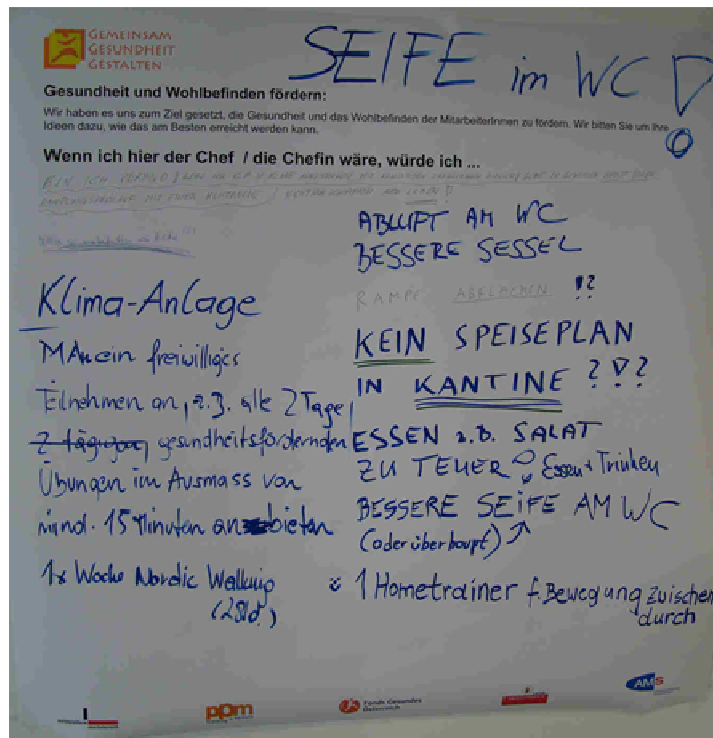 GEMEINSAM
GESUNDHEIT
GESTALTEN
SEIFE im WC !
Gesundheit und Wohlbefinden fördern:
Wir haben es uns zum Ziel gesetzt, die Gesundheit und das Wohlbefinden der MitarbeiterInnen zu fördern. Wir bitten Sie um Ihre
Ideen dazu, wie das am Besten erreicht werden kann.
Wenn ich hier der Chef / die Chefin wäre, würde ich ...
ABLUFT AM WC
BESSERE SESSEL
RAMPE ABFLACHEN !?
Klima-Anlage
MAnein freiwilliges
Teilnehmen an, z.B. alle 2 Tage,
2 tägigen gesundheitsfördernden
Übungen im Ausmass von
mind. 15 Minuten anbieten
1x Woche Nordic Walking
(2Std.)
KEIN SPEISEPLAN
IN KANTINE ?!?
ESSEN z.B. SALAT
ZU TEUER Essen + Trinken
BESSERE SEIFE AM WC
(oder überhaupt)
1 Hometrainer f. Bewegung zwischen
durch
ppm
Fonds Gesundes
Österreich
AMS